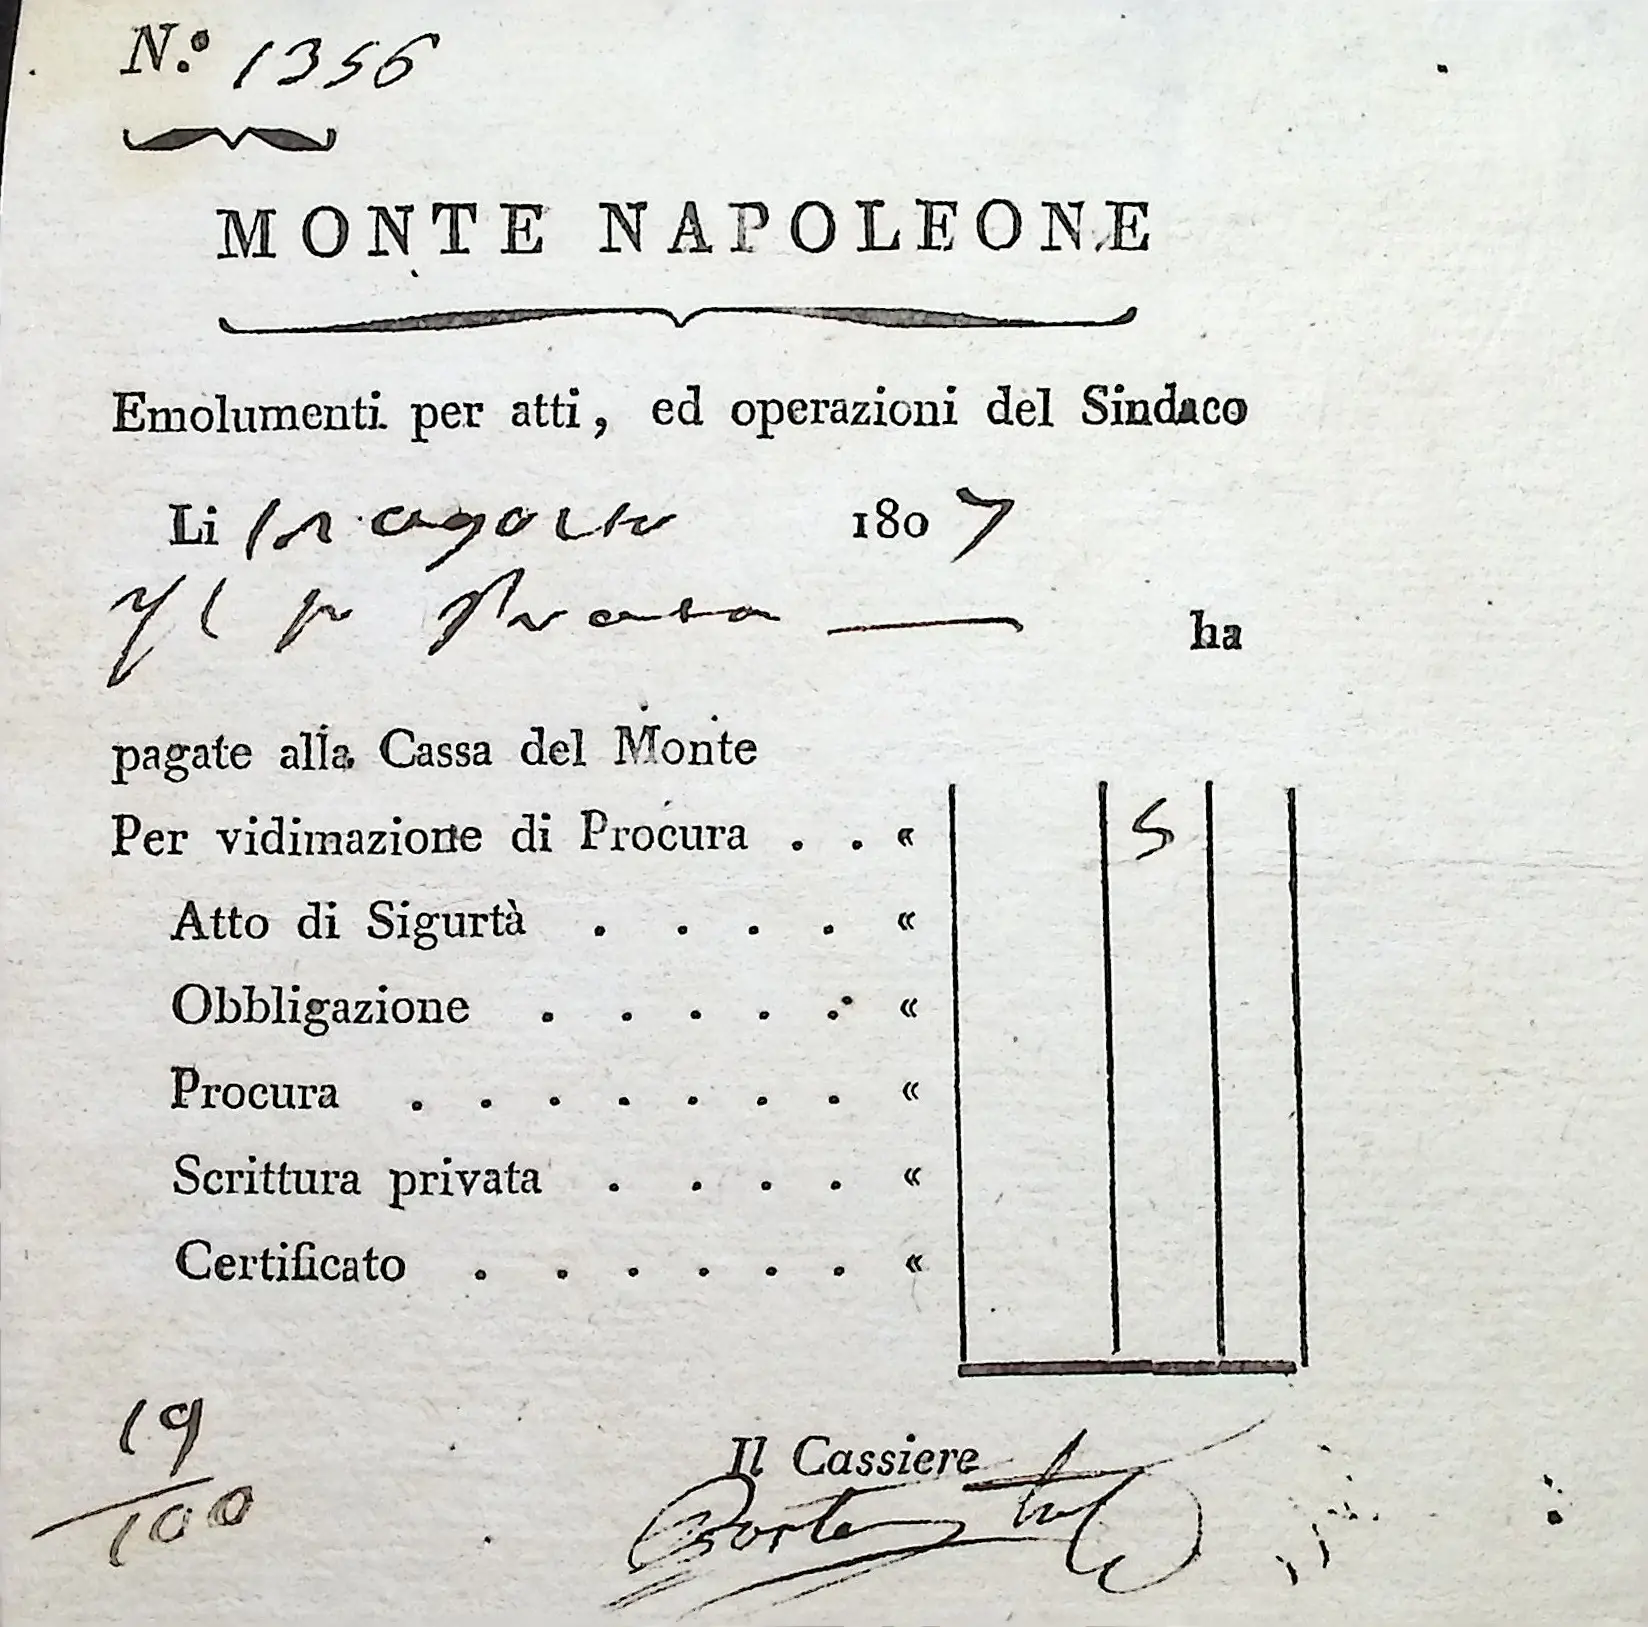 N.° 1356
MONTE NAPOLEONE
Emolumenti per atti, ed operazioni del Sindaco
Li agosto 1807
ha
pagate alla Cassa del Monte
Per vidimazione di Procura . . « 5
Atto di Sigurtà . . . . «
Obbligazione . . . . . «
Procura . . . . . . . «
Scrittura privata . . . . «
Certificato . . . . . . «
19
100
Il Cassiere